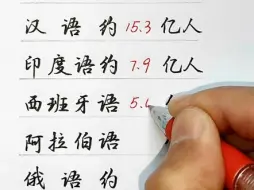 汉语约 15.3 亿人
印度语约 7.9 亿人
西班牙语 5.
阿拉伯语
俄语约